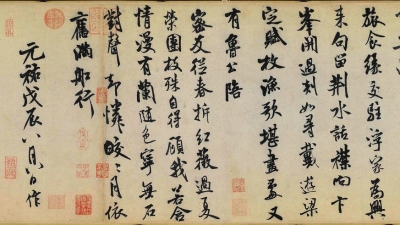 旅食緣交駐浮家為興
來句留荊水話襟向卞
峯開過剡如尋戴遊梁
定賦枚漁歌堪畫處又
有魯公陪
密友從春拆紅薇過夏
榮團枝殊自得顧我若含
情漫有蘭隨色寧無石
對聲却憐皎皎月依
舊滿船行
元祐戊辰八月八日作